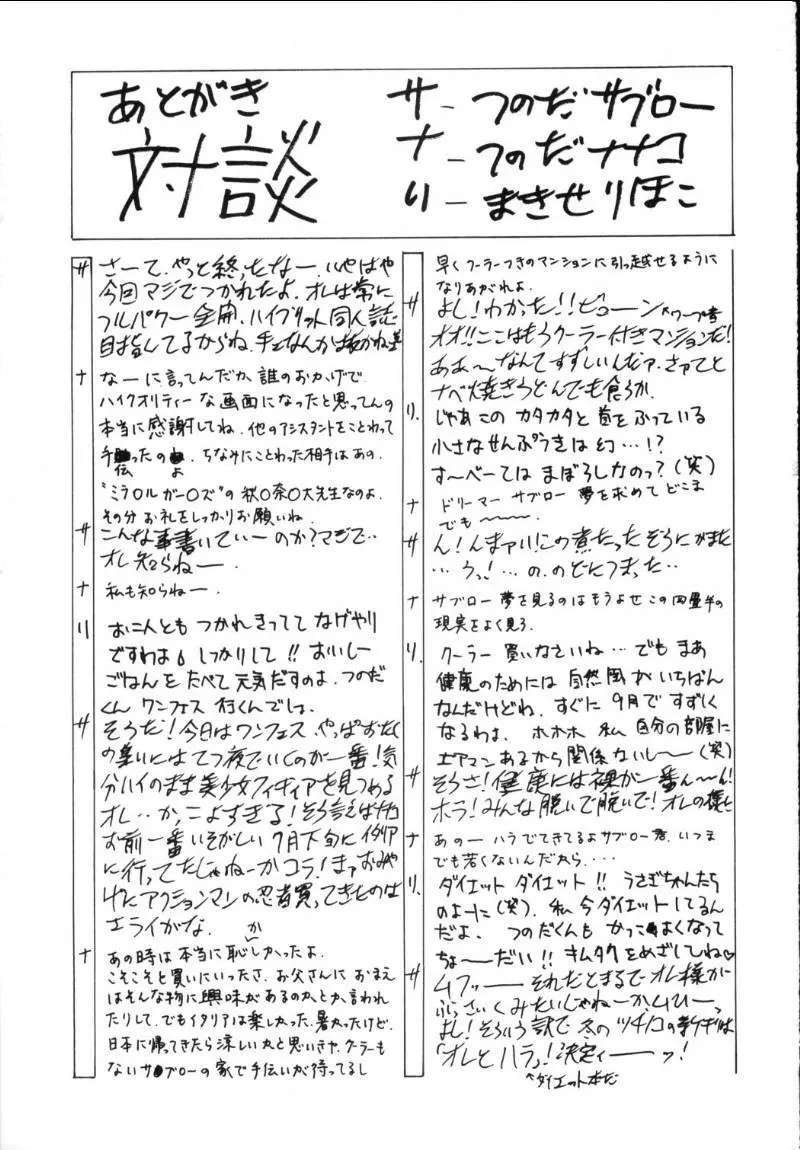 あとがき
対談
サ－つのだサブロー
ナ－つのだナナコ
り－まきせりほこ
サ さーて、やっと終ったなー、いやはや
今回マジでつかれたよ。オレは常に
フルパワー全開、ハイブリット同人誌
目指してるからね、手なんかは抜かねぇ
ナ なーに言ってんだか、誰のおかげで
ハイクオリティーな画面になったと思ってんの
本当に感謝してね。他のアシスタントをことわって
手伝ったのよ。ちなみにことわった相手はあの、
"ミラ○ル ガー○ズ"の秋○奈○大先生なのよ。
その分お礼をしっかりお願いね。
サ こんな事書いていーのか？マジで‥
オレ知らねー。
ナ 私も知らねー。
り お二人とも つかれきってて なげやり
ですわよ。しっかりして!! おいしー
ごはんをたべて元気だすのよ。つのだ
くん ワンフェス 行くんでしょ。
サ そうだ！今日はワンフェス やっぱおたく
の集いにはてつ夜でいくのが一番！気
分ハイのまま美少女フィギュアを見つめる
オレ‥かっこよすぎる！そう言えばナナコ
お前一番いそがしい7月下旬にイタリア
に行ってたじゃねーかコラ！まァおみや
げにアクションマンの忍者買ってきたのは
エライがな。
ナ あの時は本当に恥かしかったよ。
こそこそと買いにいったさ、お父さんに おまえ
はそんな物に興味があるのかとか言われ
たりして、でもイタリアは楽しかった、暑かったけど、
日本に帰ってきたら涼しいかと思いきや、クーラーも
ないサブローの家で手伝いが待ってるし
早くクーラーつきのマンションに引っ越せるように
なりあがれよ。
サ よし！わかった!!ビューン＊ワープ音
オオ!!ここはもうクーラー付きマンションだ！
ああ～なんてすずしいんだァ、さァてと
ナベ焼きうどんでも食うか。
り、じゃあこの カタカタと首をふっている
小さなせんぷうきは幻…!?
す～べーては まぼろしなのっ？(笑)
ナ ドリーマー サブロー 夢を求めて どこま
でも～～～。
サ ん！んまァい！この煮たったぞうにがまた
…うっ！…の、のどにつまった‥
ナ サブロー 夢を見るのはもうよせ この四畳半の
現実をよく見ろ。
り、クーラー 買いなさいね… でも まあ
健康のためには 自然風がいちばん
なんだけどね。すぐに 9月で すずしく
なるわよ。ホホホ 私 自分の部屋に
エアマンあるから関係ないし～(笑)
サ そうさ！健康には裸が一番ん～ん！
ホラ！みんな脱いで脱いで！オレの様に
ナ あのー ハラでてきてるよサブロー君、いつま
でも若くないんだから‥‥
り、ダイエット ダイエット!! うさぎちゃんたち
のよーに(笑)、私 今ダイエットしてるん
だよ。つのだくんも かっこよくなって
ちょーだい!! キムタクをめざしてね♡
サ ムフッー それだとまるでオレ様が
ぶさいくみたいじゃねーか、ムひーっ
よし！そういう訳で 冬の ツチノコの新刊は
「オレとハラ」！決定ィーーッ！
^ダイエット本だ